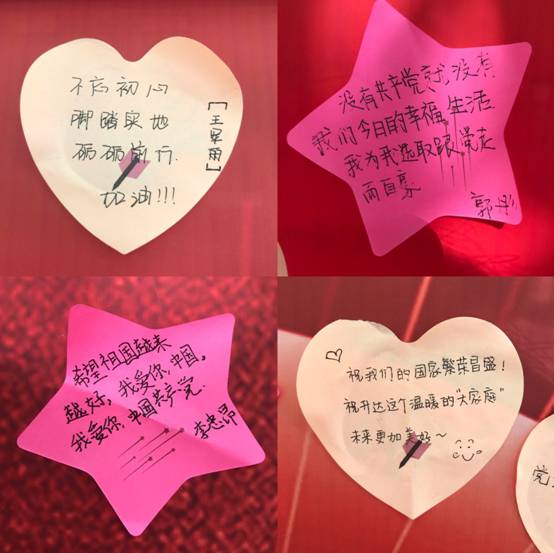 不忘初心
脚踏实地
砺砺前行.
加油!!!
[王军雨]
没有共产党就没有
我们今日的幸福生活
我为我选取跟党走
而自豪
郭彤
希望祖国越来
越好,我爱你,中国,
我爱你,中国共产党.
李忠昂
祝我们的国家繁荣昌盛!
祝升达这个温暖的“大家庭”
未来更加美好~
党